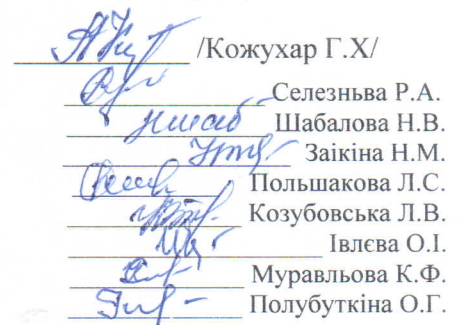 /Кожухар Г.Х/
Селезньва Р.А.
Шабалова Н.В.
Заікіна Н.М.
Польшакова Л.С.
Козубовська Л.В.
Івлєва О.І.
Муравльова К.Ф.
Полубуткіна О.Г.